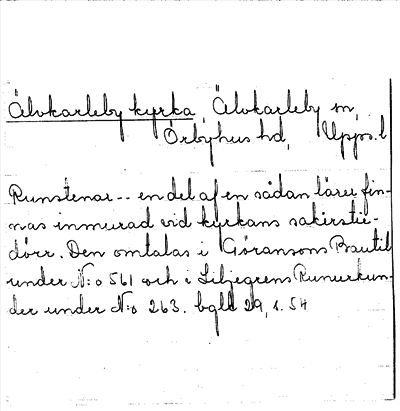 Älvkarleby kyrka, Älvkarleby sn,
Örbyhus hd, Upps. l
Runstenar -- en del af en sådan lärer fin-
nas inmurad vid kyrkans sakirstie-
dörr. Den omtalas i Göransons Bautil
under N:o 561 och i Liljegrens Runurkun-
der under N:o 263. bqld 29, s. 54